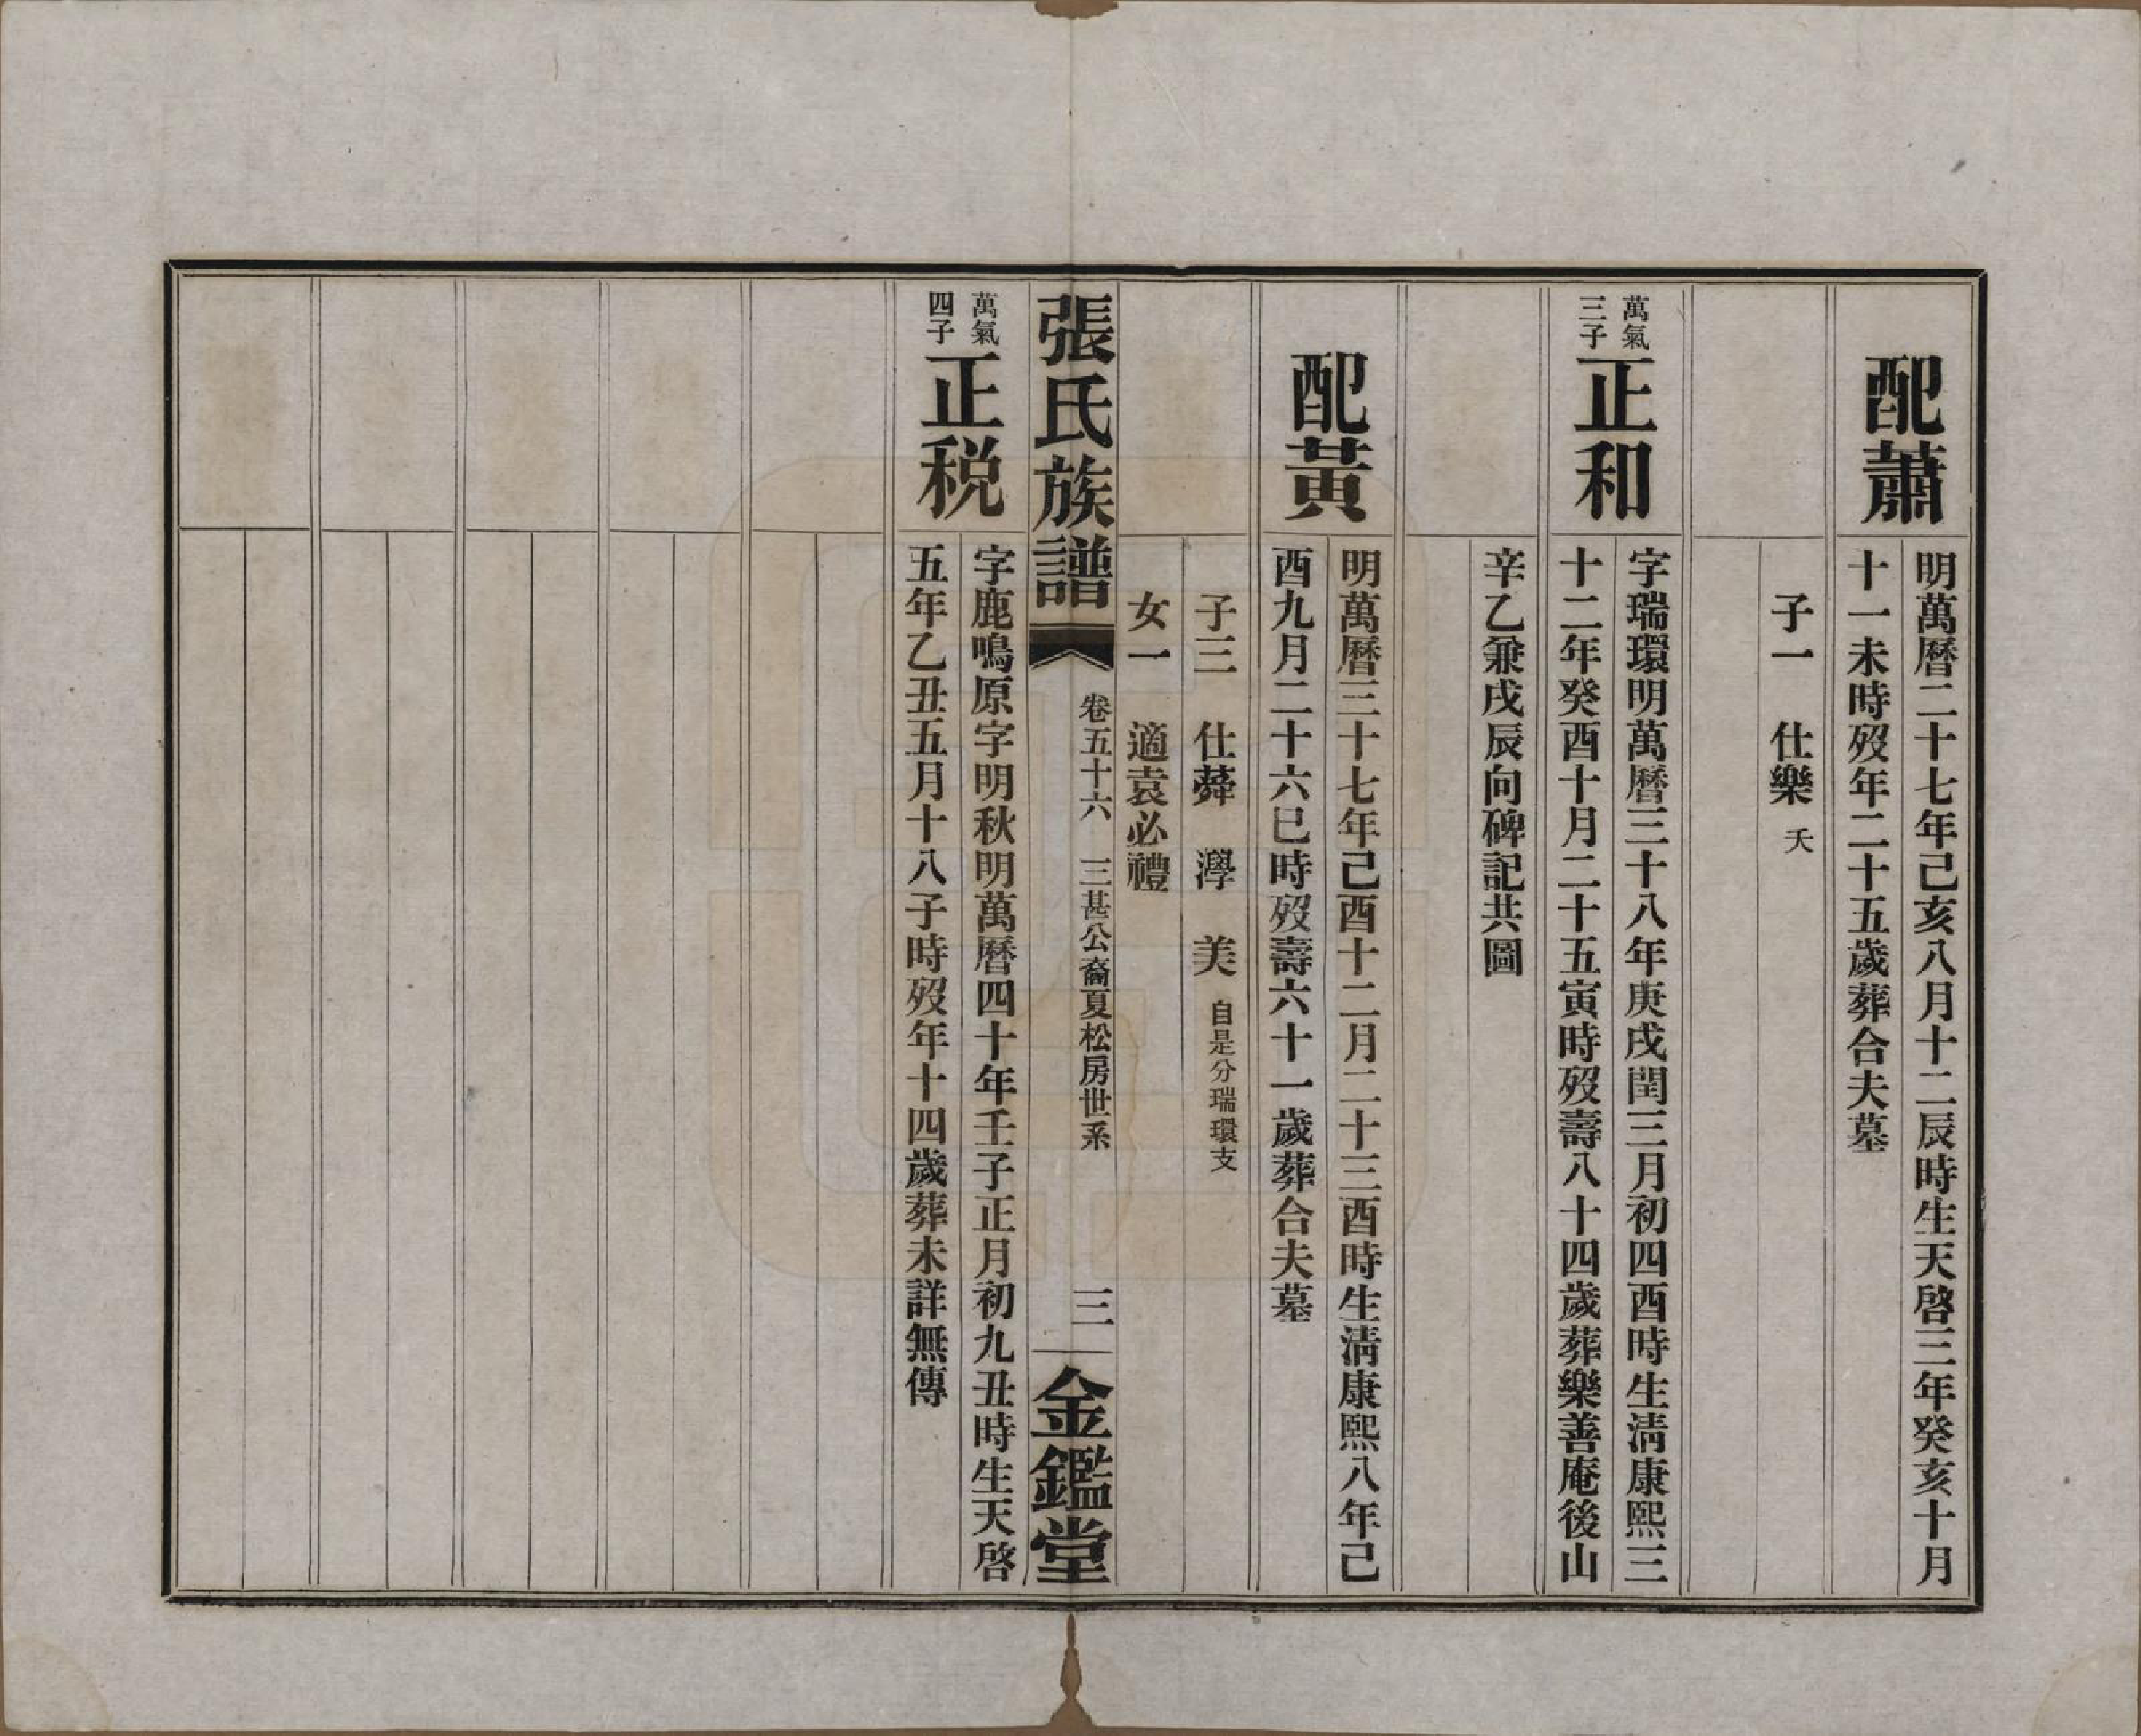 配蕭
明萬曆二十七年己亥八月十二辰時生天啓三年癸亥十月
十一未時歿年二十五歲葬合夫墓
子一　仕樂　夭
萬氣
三子
正和
字瑞環明萬曆三十八年庚戌閏三月初四酉時生淸康熙三
十二年癸酉十月二十五寅時歿壽八十四歲葬樂善庵後山
辛乙兼戌辰向碑記共圖
配黃
明萬曆三十七年己酉十二月二十三酉時生淸康熙八年己
酉九月二十六巳時歿壽六十一歲葬合夫墓
子三　仕蕣　澩　美　自是分瑞環支
女一　適袁必禮
張氏族譜
卷五十六　三甚公裔夏松房世系
三
金鑑堂
萬氣
四子
正税
字鹿鳴原字明秋明萬曆四十年壬子正月初九丑時生天啓
五年乙丑五月十八子時歿年十四歲葬未詳無傳